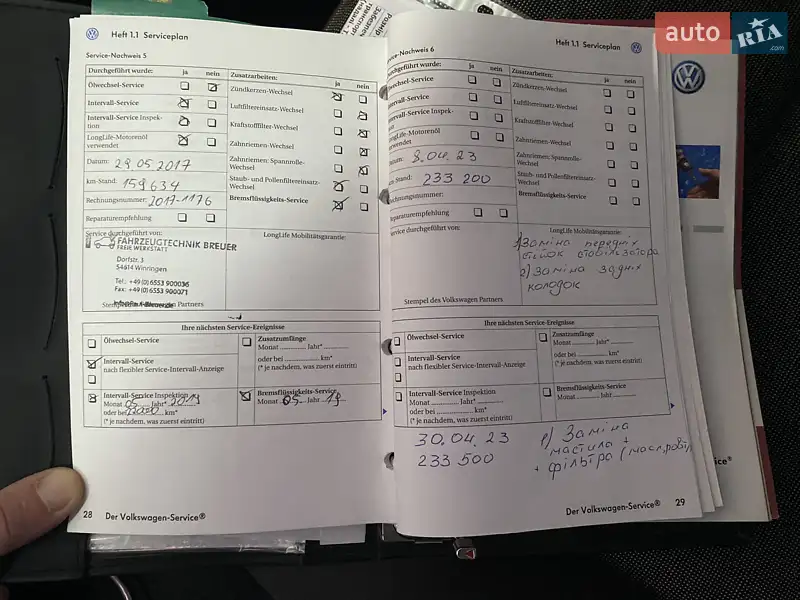 auto RIA .com
Heft 1.1 Serviceplan
Service-Nachweis 5
Durchgeführt wurde: ja nein
Ölwechsel-Service
Intervall-Service
Intervall-Service Inspek-
tion
LongLife-Motorenöl
verwendet
Datum: 29.05.2017
km-Stand: 159634
Rechnungsnummer: 2017-1176
Reparaturempfehlung
Zusatzarbeiten: ja nein
Zündkerzen-Wechsel
Luftfiltereinsatz-Wechsel
Kraftstofffilter-Wechsel
Zahnriemen-Wechsel
Zahnriemen: Spannrolle-
Wechsel
Staub- und Pollenfiltereinsatz-
Wechsel
Bremsflüssigkeits-Service
Service durchgeführt von:
FAHRZEUGTECHNIK BREUER
FREIE WERKSTATT
Dorfstr. 3
54614 Winringen
Tel.: +49 (0) 6553 900036
Fax: +49 (0) 6553 900071
Partners
LongLife Mobilitätsgarantie:
Ihre nächsten Service-Ereignisse
Ölwechsel-Service
Intervall-Service
nach flexibler Service-Intervall-Anzeige
Intervall-Service Inspektion
Monat 05 Jahr* 2019
oder bei km*
(* je nachdem, was zuerst eintritt)
Zusatzumfänge
Monat Jahr*
oder bei km*
(* je nachdem, was zuerst eintritt)
Bremsflüssigkeits-Service
Monat 05 Jahr 19
28 Der Volkswagen-Service®
Heft 1.1 Serviceplan
Service-Nachweis 6
Durchgeführt wurde: ja nein
Ölwechsel-Service
Intervall-Service
Intervall-Service Inspek-
tion
LongLife-Motorenöl
verwendet
Datum: 8.04.23
km-Stand: 233 200
Rechnungsnummer:
Reparaturempfehlung
Zusatzarbeiten: ja nein
Zündkerzen-Wechsel
Luftfiltereinsatz-Wechsel
Kraftstofffilter-Wechsel
Zahnriemen-Wechsel
Zahnriemen: Spannrolle-
Wechsel
Staub- und Pollenfiltereinsatz-
Wechsel
Bremsflüssigkeits-Service
Service durchgeführt von:
Stempel des Volkswagen Partners
LongLife Mobilitätsgarantie:
1) Заміна передніх
стійок стабілізатора
2) Заміна задніх
колодок
Ihre nächsten Service-Ereignisse
Ölwechsel-Service
Intervall-Service
nach flexibler Service-Intervall-Anzeige
Intervall-Service Inspektion
Monat Jahr*
oder bei km*
(* je nachdem, was zuerst eintritt)
Zusatzumfänge
Monat Jahr*
oder bei km*
(* je nachdem, was zuerst eintritt)
Bremsflüssigkeits-Service
Monat Jahr
30.04.23
233 500
Заміна
мастила +
+ фільтра
Der Volkswagen-Service® 29